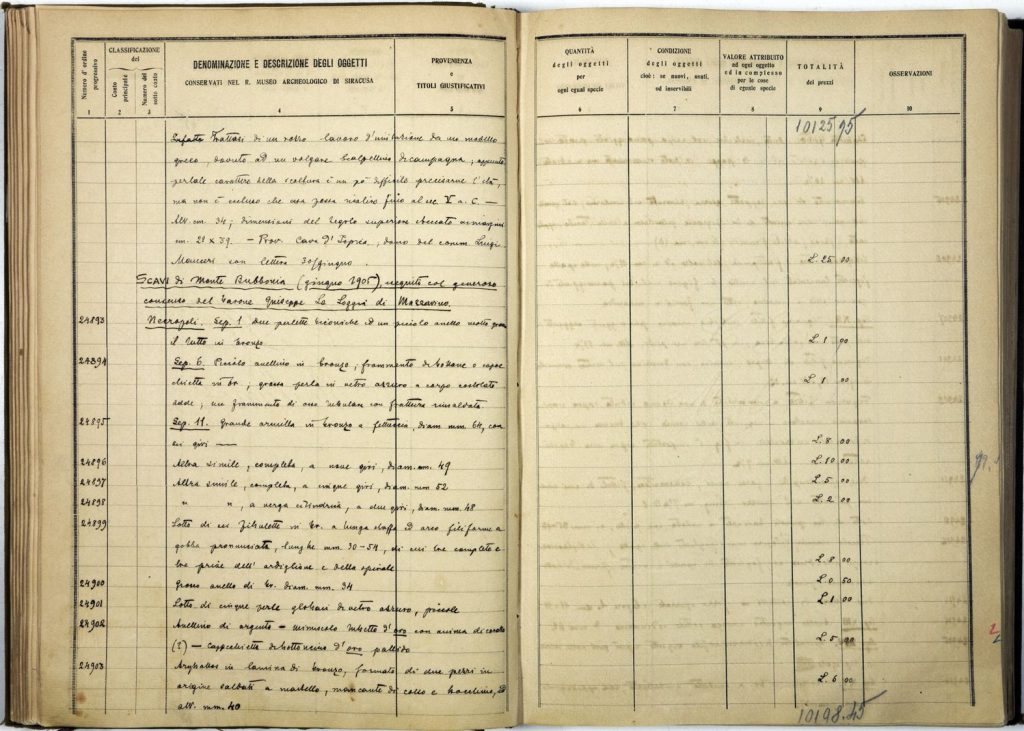 Numero d'ordine progressivo
CLASSIFICAZIONE del
Conto principale
Numero del sotto conto
DENOMINAZIONE E DESCRIZIONE DEGLI OGGETTI
CONSERVATI NEL R. MUSEO ARCHEOLOGICO DI SIRACUSA
PROVENIENZA
e
TITOLI GIUSTIFICATIVI
QUANTITÀ
degli oggetti
per
ogni egual specie
CONDIZIONE
degli oggetti
cioè: se nuovi, usati,
od inservibili
VALORE ATTRIBUITO
ad ogni oggetto
ed in complesso
per le cose
di eguale specie
TOTALITÀ
dei prezzi
OSSERVAZIONI
1 2 3 4 5 6 7 8 9 10
10125 95
Infatti trattasi di un rozzo lavoro d'imitazione da un modello
greco, dovuto ad un volgare scalpellino di campagna; appunto
per tale carattere della scoltura è un pò difficile precisarne l'età,
ma non è escluso che essa possa risalire fino al sec. V a. C. —
Alt. cm. 34; dimensioni del regolo superiore
cm. 21 x 39. — Prov. Cava d'Ispica, dono del comm. Luigi
Mauceri con lettera 30/giugno. L. 25 00
SCAVI di Monte Bubbonia (giugno 1905), eseguiti col generoso
consenso del barone Giuseppe La Loggia di Mazzarino.
24893 Necropoli. Sep. 1 due perlette biconiche ed un piccolo anello molto
il tutto in bronzo L. 1 00
24894 Sep. 6. Piccolo anellino in bronzo; frammento di bottone o capoc
chietta in br; grossa perla in vetro azzurro a corpo costolato
adde; un frammento di osso tubolare con frattura risaldata L. 1 00
24895 Sep. 11. Grande armilla in bronzo a fettuccia, diam. mm. 64, con
sei giri — L. 8 00
24896 Altra simile, completa, a nove giri, diam. mm. 49 L. 10 00
24897 Altra simile, completa, a cinque giri, diam. mm 52 L. 5 00
24898 " ", a verga cilindrica, a due giri, diam. mm. 48 L. 2 00
24899 Lotto di sei fibulette in br. a lunga staffa ed arco filiforme a
gobba pronunciata, lunghe mm. 30-54, di cui tre complete e
tre prive dell'ardiglione e della spirale L. 8 00
24900 Grosso anello di br. diam. mm. 34 L. 0 50
24901 Lotto di cinque perle globari di vetro azzurro, piccole L. 1 00
24902 Anellino di argento — minuscolo tubetto d'oro con anima di corallo
(?) — capocchietta di bottoncino d'oro pallido L. 5 00
24903 Aryballos in lamina di bronzo, formato di due pezzi in
origine saldati a martello, mancante di collo e bocchino,
alt. mm. 40 L. 6 00
10198.45